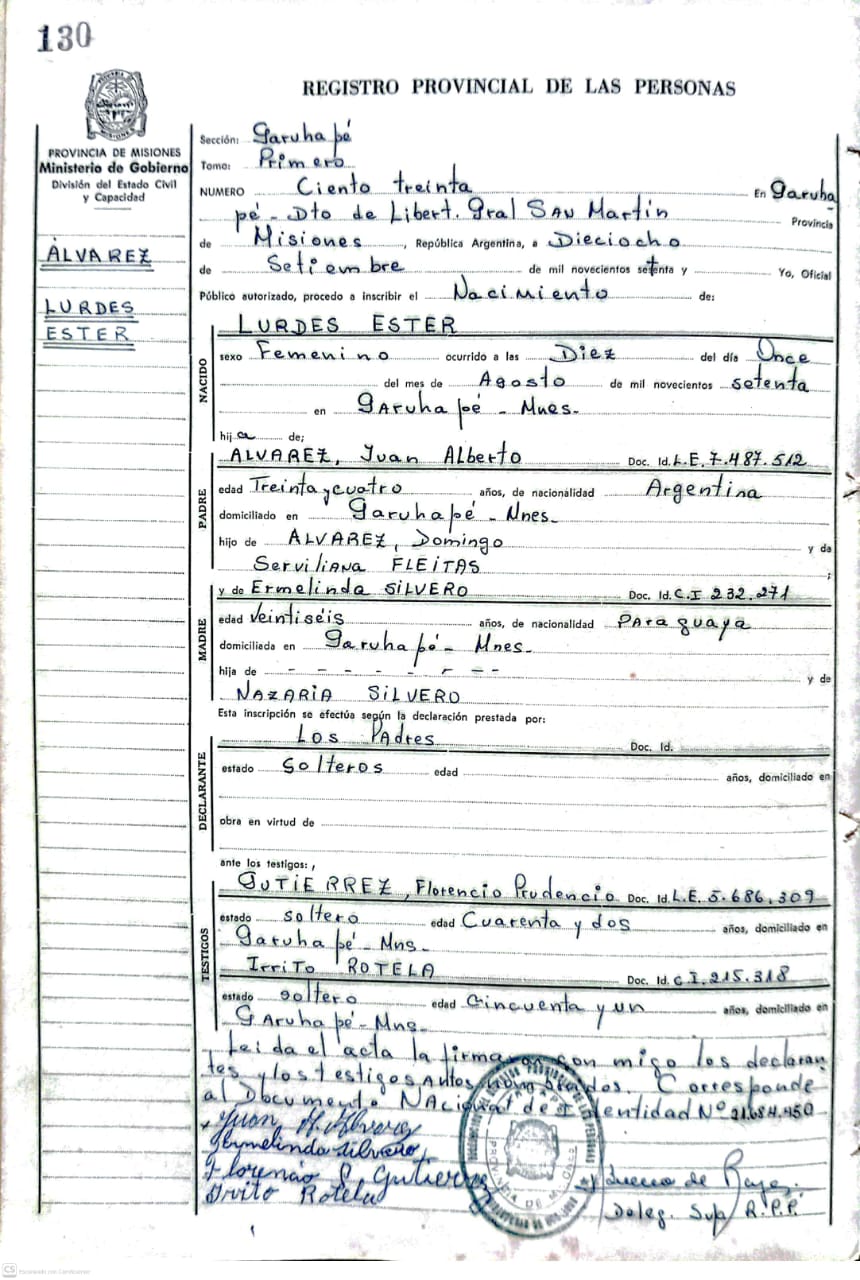 130
REGISTRO PROVINCIAL DE LAS PERSONAS
PROVINCIA DE MISIONES
Ministerio de Gobierno
División del Estado Civil
y Capacidad
ÁLVAREZ
LURDES
ESTER
Sección: Garuhapé
Tomo: Primero
NUMERO Ciento treinta En Garuha
pé - Dto de Libert. Gral San Martín Provincia
de Misiones, República Argentina, a Dieciocho
de Setiembre de mil novecientos setenta y Yo, Oficial
Público autorizado, procedo a inscribir el Nacimiento de:
NACIDO
LURDES ESTER
sexo Femenino ocurrido a las Diez del día Once
del mes de Agosto de mil novecientos setenta
en Garuhapé - Mnes.
hija de;
PADRE
ALVAREZ, Juan Alberto Doc. Id. L.E. 7.487.512
edad Treinta y cuatro años, de nacionalidad Argentina
domiciliado en Garuhapé - Mnes.
hijo de ALVAREZ, Domingo y de
Serviliana FLEITAS ;
MADRE
y de Ermelinda SILVERO Doc. Id. C.I 232.271
edad Veintiséis años, de nacionalidad Paraguaya
domiciliada en Garuhapé - Mnes.
hija de - - - - - - - - y de
NAZARIA SILVERO
Esta inscripción se efectúa según la declaración prestada por:
DECLARANTE
Los Padres Doc. Id.
estado Solteros edad años, domiciliado en
obra en virtud de
ante los testigos: ,
TESTIGOS
GUTIERREZ, Florencio Prudencio Doc. Id. L.E. 5.686.309
estado soltero edad Cuarenta y dos años, domiciliado en
Garuhapé - Mns.
Irrito ROTELA Doc. Id. C.I. 215.318
estado soltero edad Cincuenta y un años, domiciliado en
Garuhapé - Mns.
Leida el acta la firmaron con migo los declaran
tes y los testigos antes nombrados. Corresponde
al Documento Nacional de Identidad Nº 21.684.450
Juan A. Alvarez
Hermelinda Silvero
Florencio P. Gutierrez
Irvito Rotela
Deleg. Sup R.P.P.
PROVINCIA DE MISIONES
CS Escaneado con CamScanner